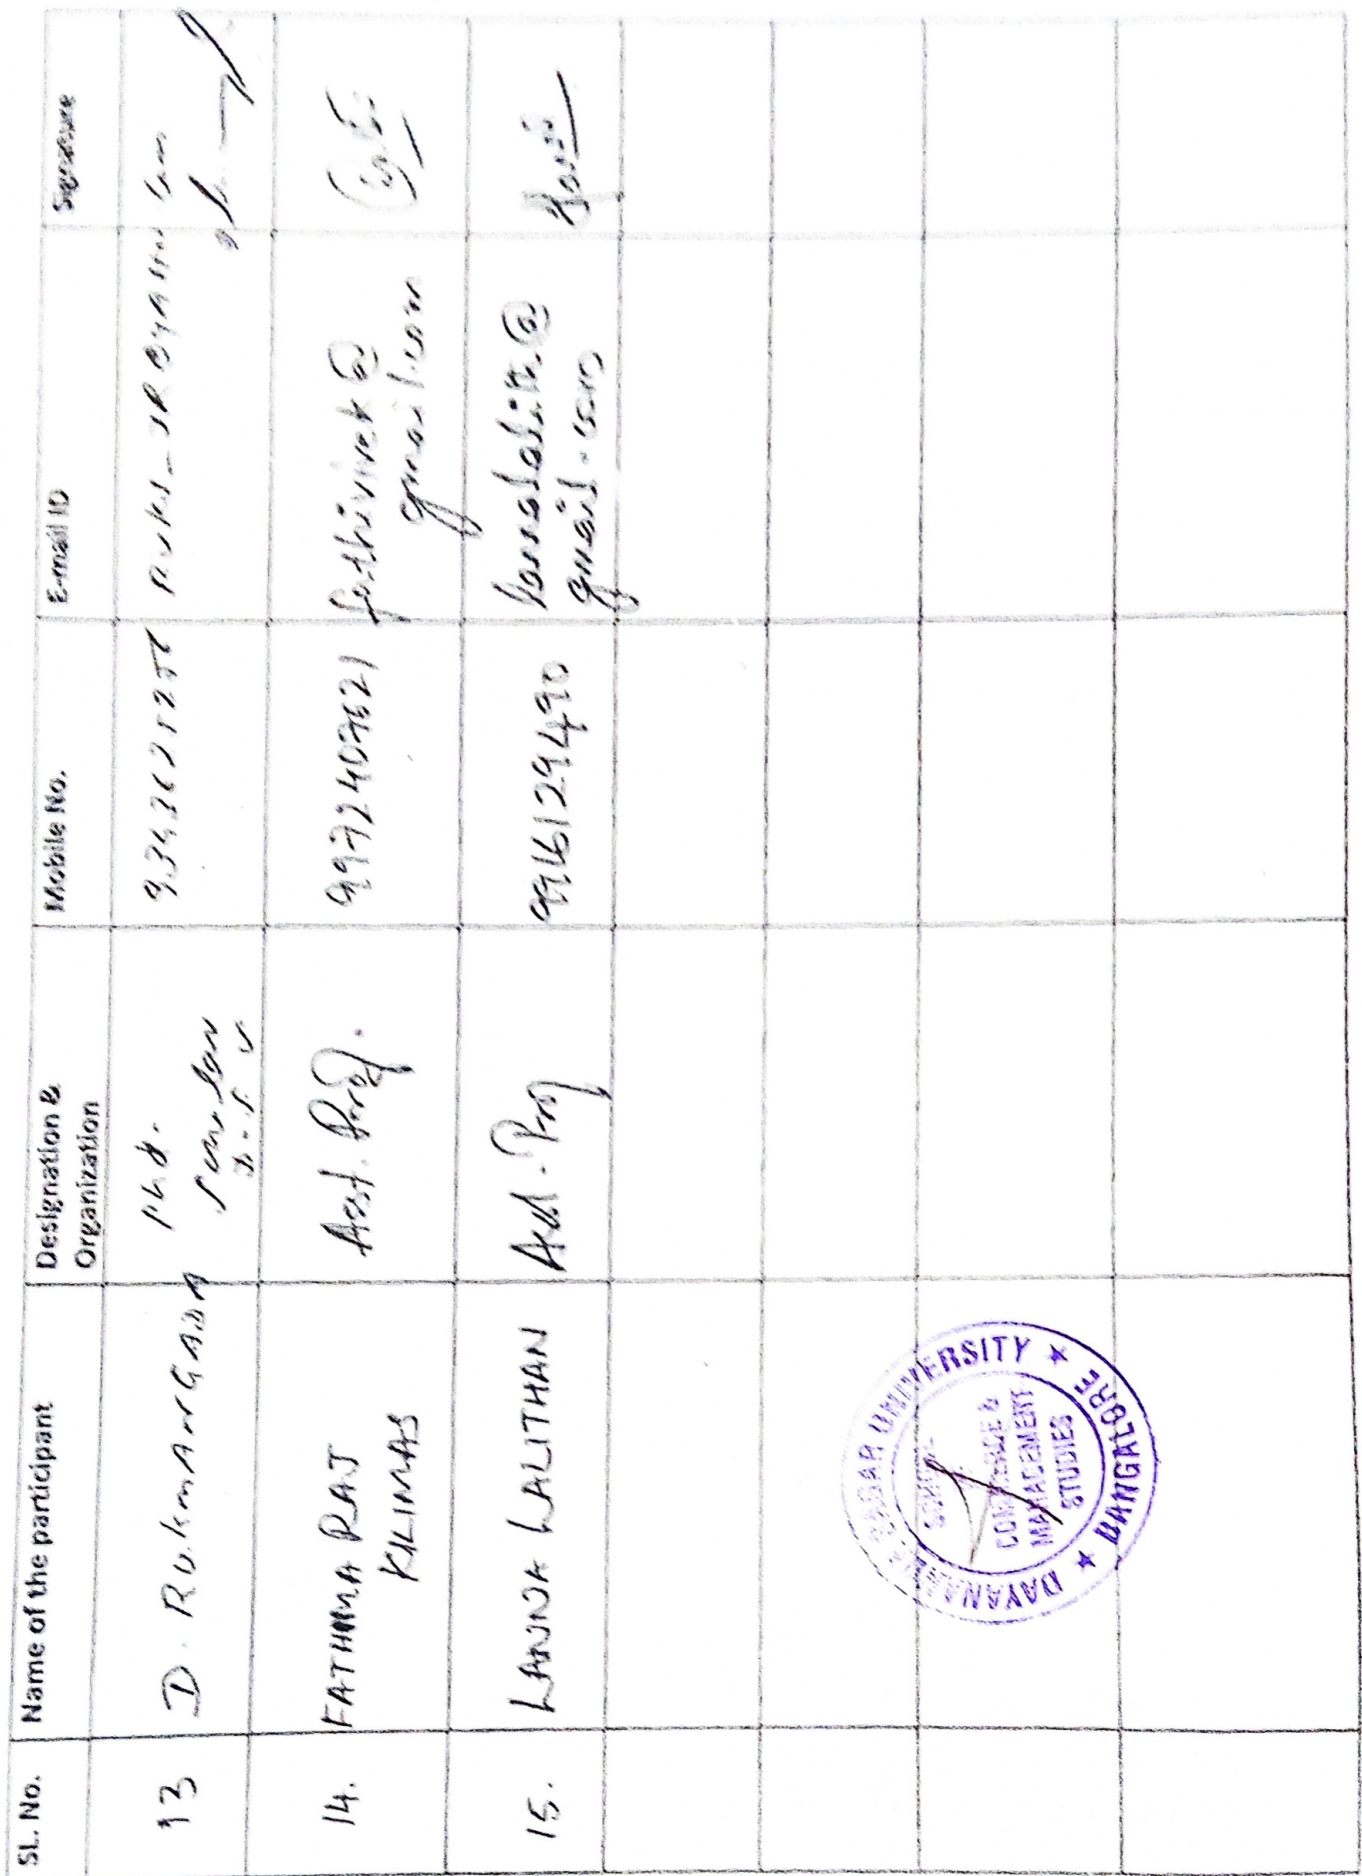 SL. No.
Name of the participant
Designation &
Organization
Mobile No.
E-mail ID
Signature
13
D. RukmANGADA
Phd.
D.S.U
14.
FATHIMA RAJ
KILIMAS
Asst. Prof.
9972407621
fathivivek@
gmail.com
15.
LANNA LALITHAN
Asst. Prof
9916129490
lannalalith@
gmail.com
DAYANANDA SAGAR UNIVERSITY ★ BANGALORE ★
SCHOOL
COMMERCE &
MANAGEMENT
STUDIES